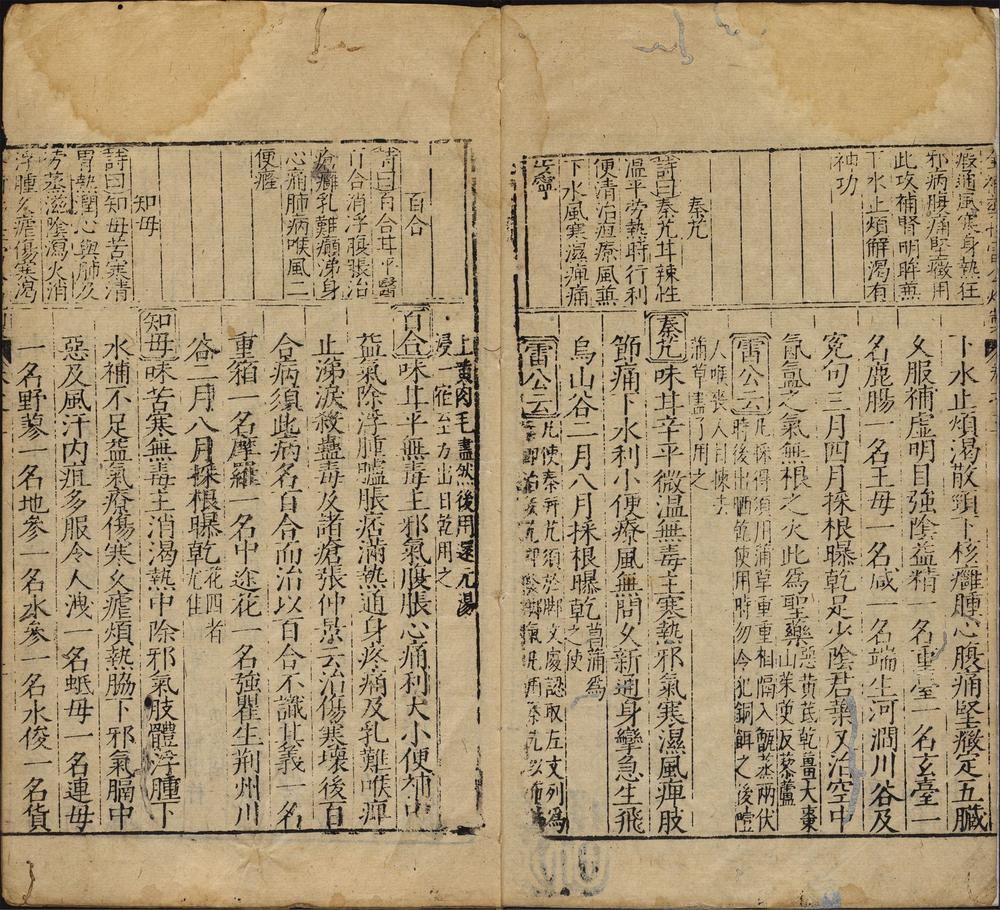 瘕通風寒身熱狂
邪病腹痛堅癥用
此攻補腎明眸兼
下水止煩解渴有
神功
秦艽
詩曰秦艽甘辣性
溫平勞熱時行利
便清治疸療風兼
下水風寒濕痺痛
皆寧
下水止煩渴散頸下核癰腫心腹痛堅癥定五臟
久服補虛明目強陰益精一名重臺一名玄臺一
名鹿腸一名王毋一名咸一名端生河澗川谷及
冤句三月四月採根曝乾足少陰君藥又治空中
氤氳之氣無根之火此爲聖藥惡黃茋乾薑大棗
山茱萸反藜蘆
雷公云凡採得須用蒲草重重相隔入甑蒸兩伏
時後出晒乾使用時勿令犯銅餌之後噎
人喉喪人目揀去
蒲草盡了用之
秦艽味甘辛平微溫無毒主寒熱邪氣寒濕風痺肢
節痛下水利小便療風無問久新通身攣急生飛
烏山谷二月八月採根曝乾菖蒲爲
之使
雷公云凡使秦并艽須於脚文處認取左文列爲
百合
詩曰百合甘平醫
百合消浮腹脹治
瘡癰乳難癲涕身
心痛肺病喉風二
便癃
知毋
詩曰知毋苦寒清
胃熱潤心與肺及
勞蒸滋陰瀉火消
浮腫久瘧傷寒瀉
上黃肉毛盡然後用還元湯
浸一宿至方出日乾用之
百合味甘平無毒主邪氣腹脹心痛利大小便補中
益氣除浮腫臚脹痞滿熱通身疼痛及乳難喉痺
止涕淚殺蠱毒及諸瘡張仲景云治傷寒壞後百
合病須此病名百合而治以百合不識其義一名
重箱一名摩羅一名中途花一名強瞿生荆州川
谷二月八月採根曝乾花四者
尤佳
知毋味苦寒無毒主消渴熱中除邪氣肢體浮腫下
水補不足益氣療傷寒久瘧煩熱脇下邪氣膈中
惡及風汗內疸多服令人洩一名蚳毋一名連毋
一名野蓼一名地參一名水參一名水俊一名貨